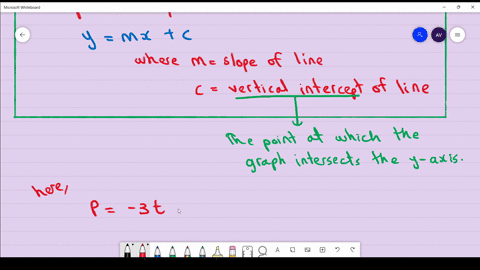 Microsoft Whiteboard
y = mx + c
where m = slope of line
c = vertical intercept of line
The point at which the
graph intersects the y-axis.
here,
P = -3t
AV